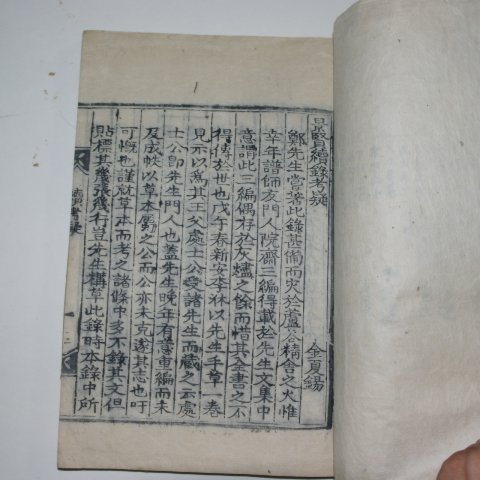 景賢續錄考疑
金夏錫
鄭先生嘗著此錄甚備而災於蘆谷精舍之火惟
幸年譜師友門人院齋三編得載於先生文集中
意謂此三編偶存於灰燼之餘而惜其全書之不
得傳於世也戊午春新安李林以先生手草一卷
見示以爲其王父處士公受諸先生而藏之云處
士公卽先生門人也蓋先生晩年有意重編而未
及成帙以草本屬之公而公亦未克遂其志也吁
可慨也謹就草本而考之諸條中多不錄其文但
貼標其幾張幾行豈先生構草此錄時本錄中所
續考疑